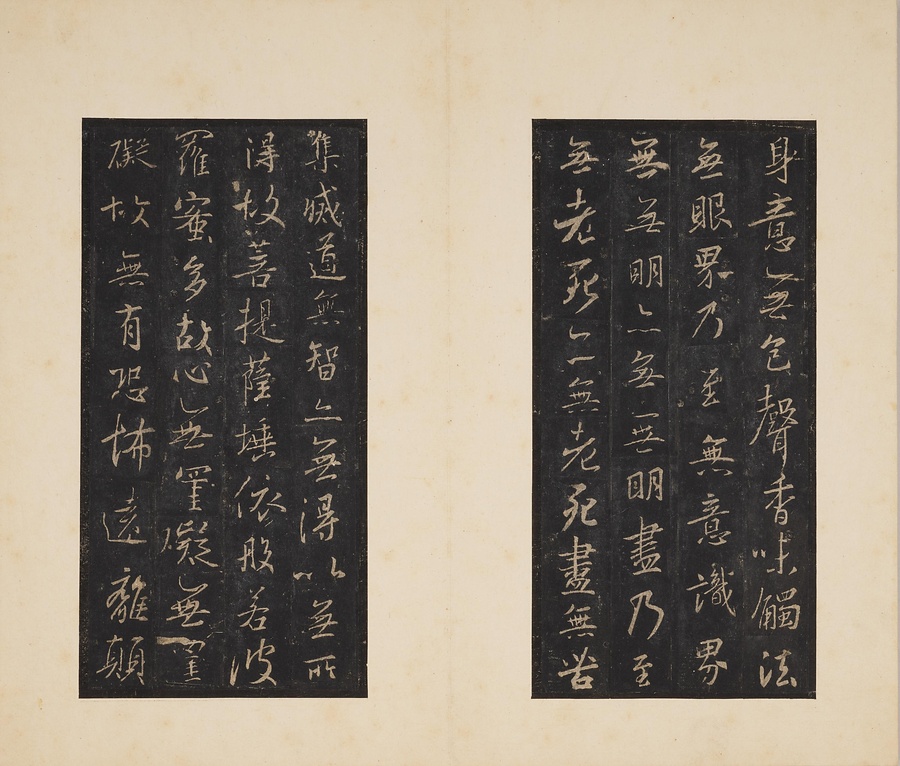 身意無色聲香味觸法
無眼界乃至無意識界
無無明亦無無明盡乃至
無老死亦無老死盡無苦
集滅道無智亦無得以無所
得故菩提薩埵依般若波
羅蜜多故心無罣礙無罣
礙故無有恐怖遠離顛